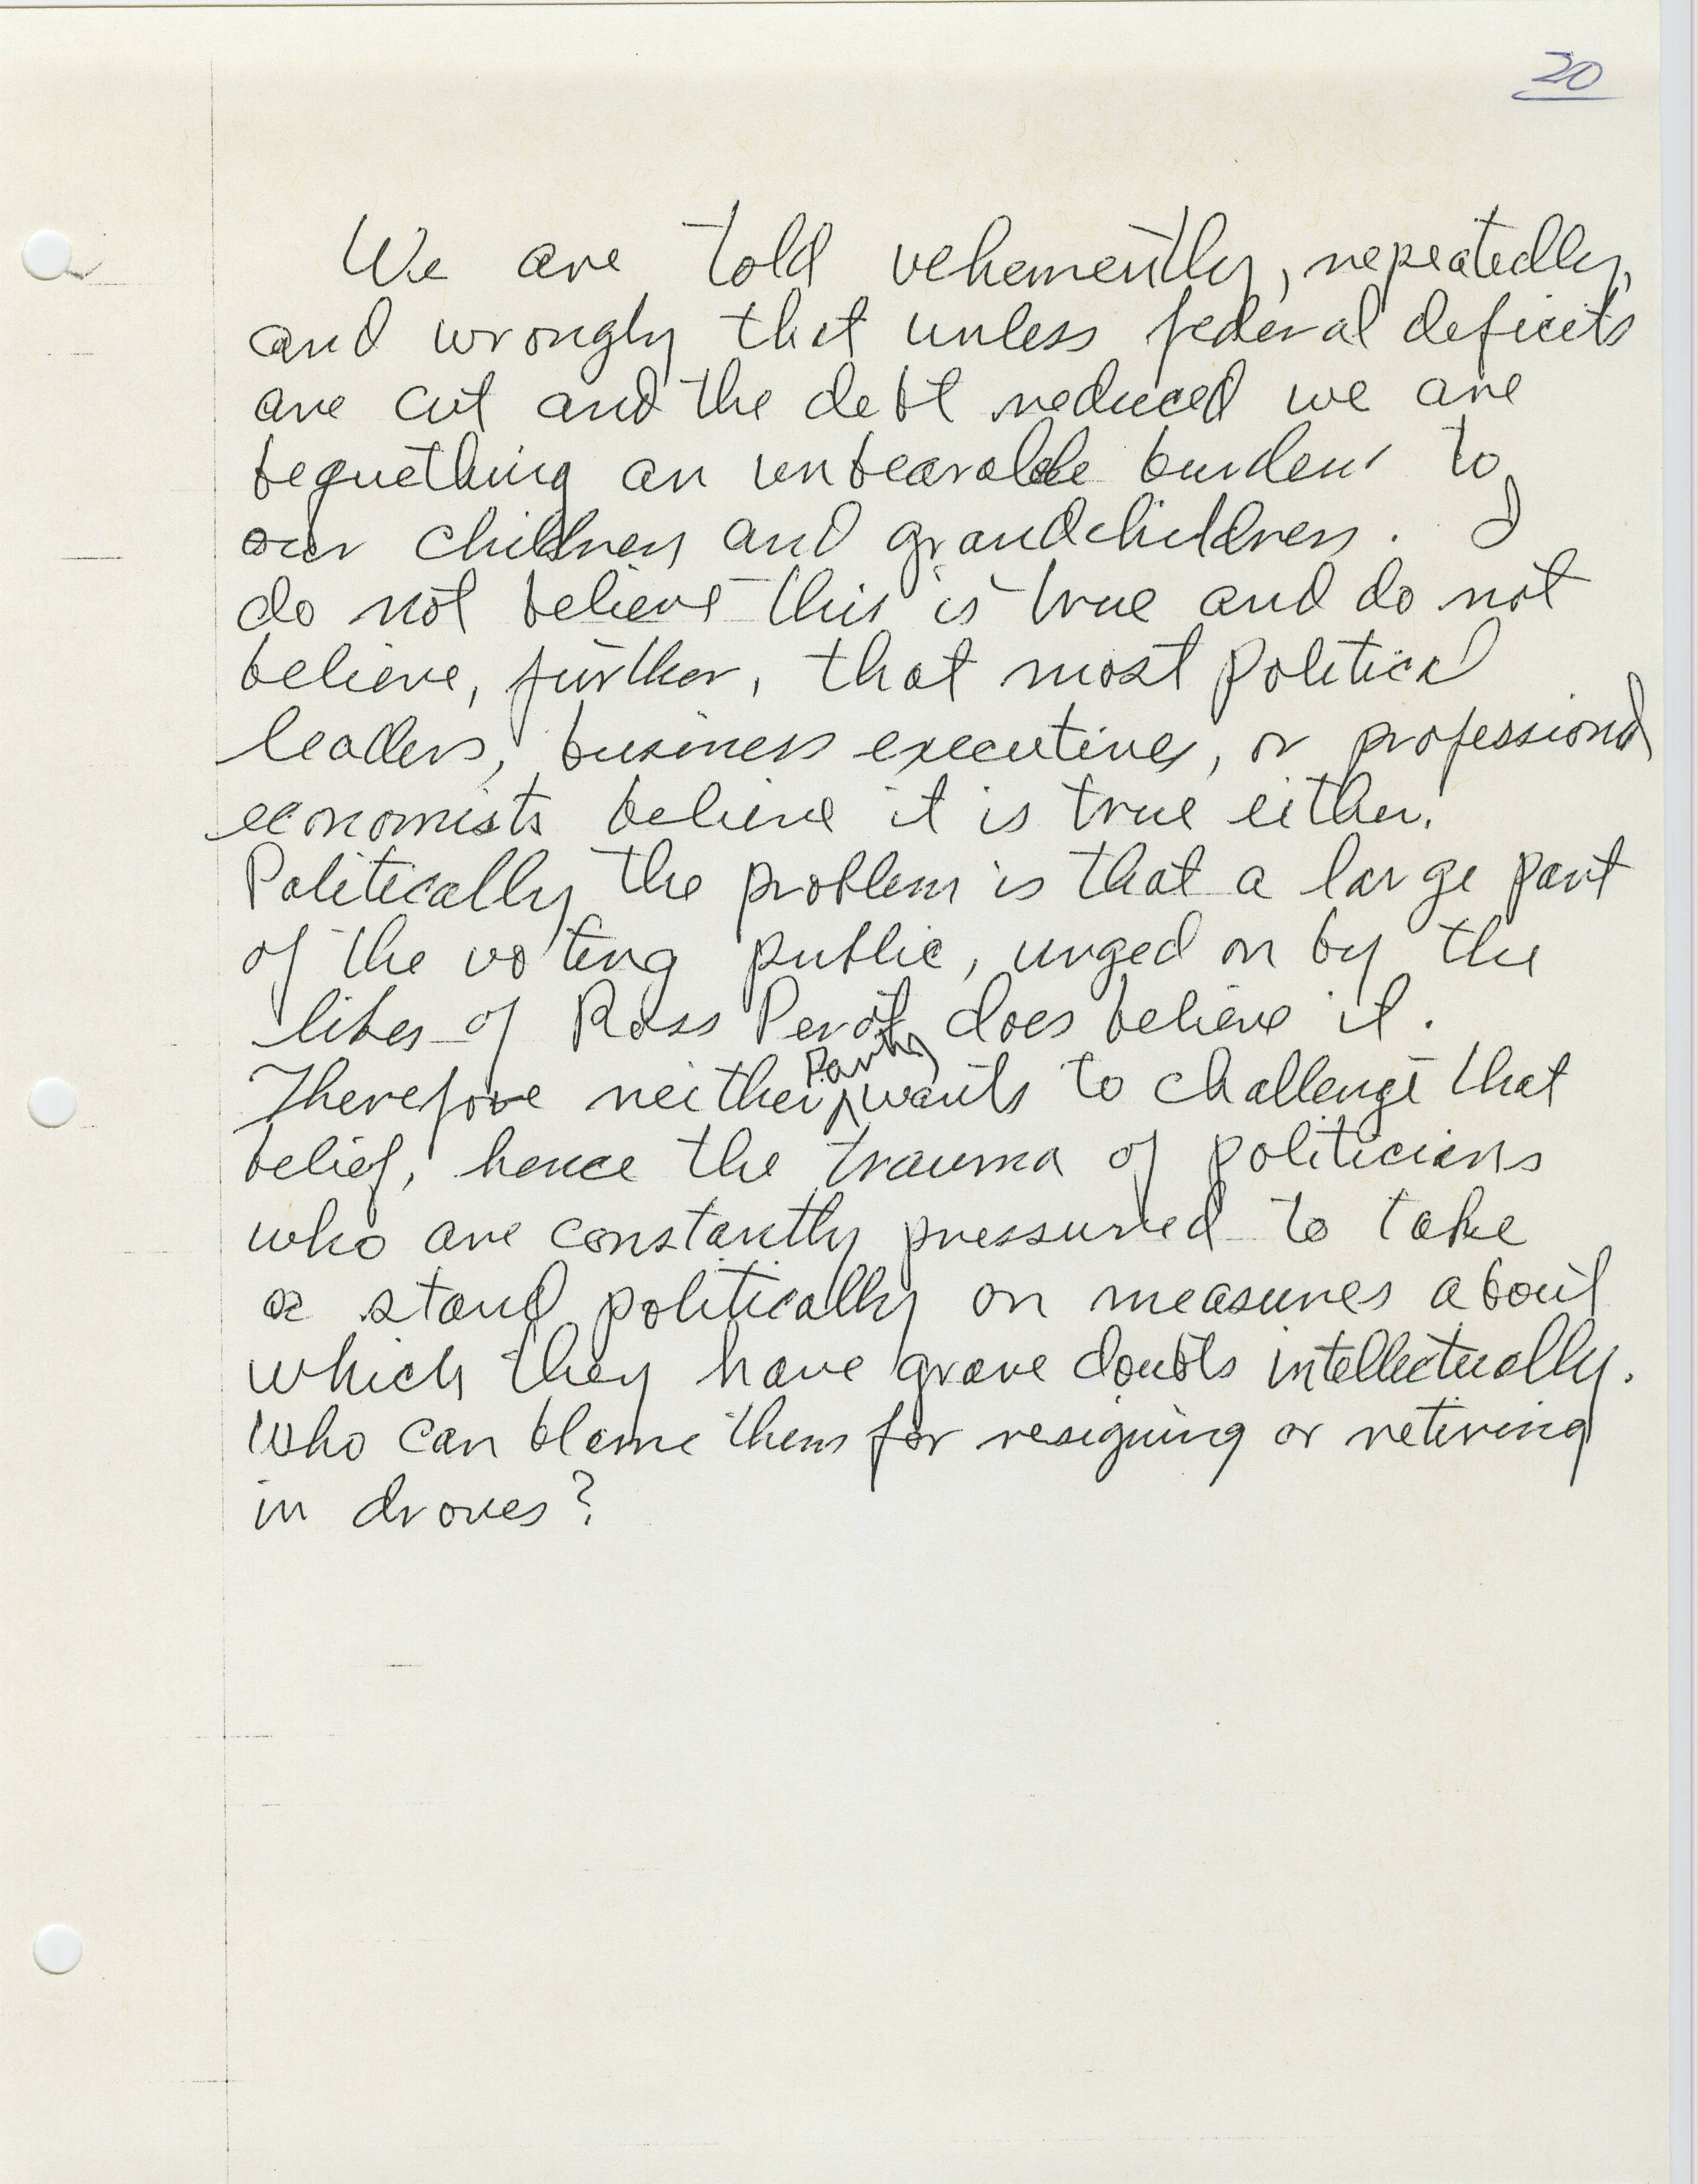 20
We are told vehemently, repeatedly,
and wrongly that unless federal deficits
are cut and the debt reduced we are
bequething an unbearable burden to
our children and grandchildren. I
do not believe this is true and do not
believe, further, that most political
leaders, business executives, or professional
economists believe it is true either.
Politically the problem is that a large part
of the voting public, urged on by the
likes of Ross Perot, does believe it.
Therefore neither Party wants to challenge that
belief, hence the trauma of politicians
who are constantly pressured to take
a stand politically on measures about
which they have grave doubts intellectually.
Who can blame them for resigning or retiring
in droves?